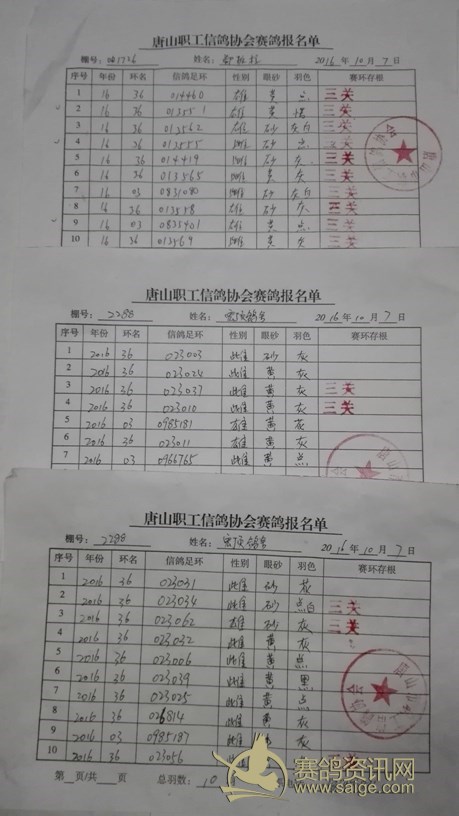 唐山职工信鸽协会赛鸽报名单
棚号： 姓名： 2016 年 10 月 7 日
序号 年份 环名 信鸽足环 性别 眼砂 羽色 赛环存根
1 16 36 014460 雄 黄 三关
2 16 36 013551 雄 黄 三关
3 16 36 013562 雄 砂 灰白 三关
4 16 26 013555 砂 三关
5 16 36 014419 灰 三关
6 16 26 013565 黄 灰 三关
7 16 03 0831080 砂 灰白 三关
8 16 26 013558 雄 砂 灰 三关
9 16 03 0835401 黄 三关
10 16 36 013569 黄 灰 三关
唐山职工信鸽协会赛鸽报名单
棚号：2288 姓名： 2016 年 10 月 7 日
序号 年份 环名 信鸽足环 性别 眼砂 羽色 赛环存根
1 2016 36 023003 雌 砂 灰
2 2016 36 023024 雌 黄 灰
3 2016 36 023037 雌 黄 灰 三关
4 2016 36 023010 雌 黄 灰 三关
5 2016 03 0985181 雄 黄 灰
6 2016 36 023011 雄 黄 灰
7 2016 03 0966765 雌 黄 点
唐山职工信鸽协会赛鸽报名单
棚号：2288 姓名： 2016 年 10 月 7 日
序号 年份 环名 信鸽足环 性别 眼砂 羽色 赛环存根
1 2016 36 023031 雌 砂 灰
2 2016 36 023034 雌 砂 点白 三关
3 2016 36 023062 雄 砂 灰 三关
4 2016 36 023032 雌 黄 灰
5 2016 36 023006 雌 黄 点
6 2016 36 023039 雌 黄 黑
7 2016 36 023025 雌 黄 点
8 2016 36 026814 雌 黄 灰
9 2016 03 0985187 雌 黄 灰
10 2016 36 023056 雌 黄 点 三关
第 页/共 页 总羽数：10
赛鸽资讯网
www.saige.com